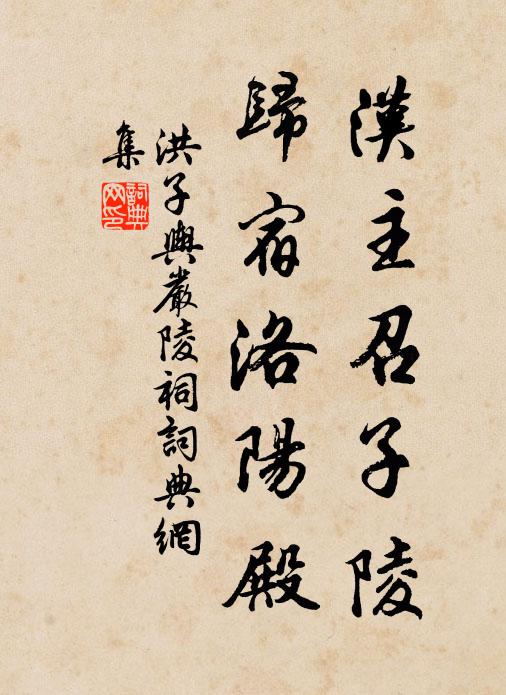 漢主召子陵
歸宿洛陽殿
洪子輿嚴陵祠詞典網
集
詞典網印